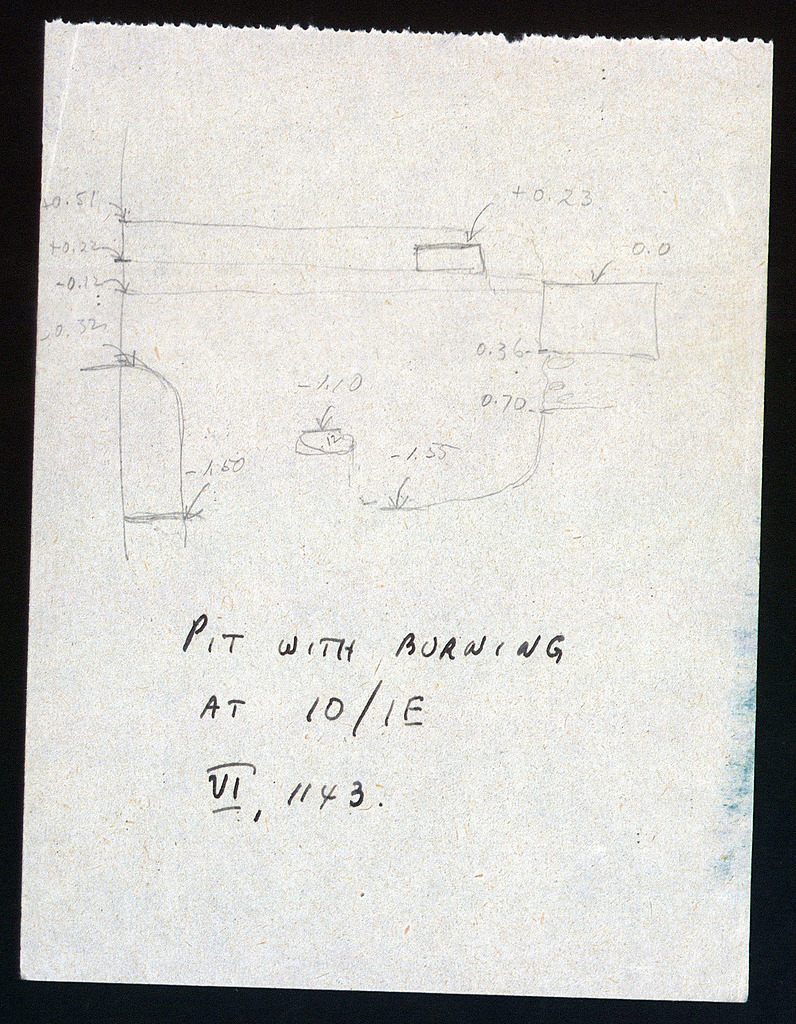 +0.51
+0.23
+0.22
0.0
-0.12
-0.32
0.36
-1.10
0.70
12
-1.55
-1.50
PIT WITH BURNING
AT 10/1E
VI, 1143.